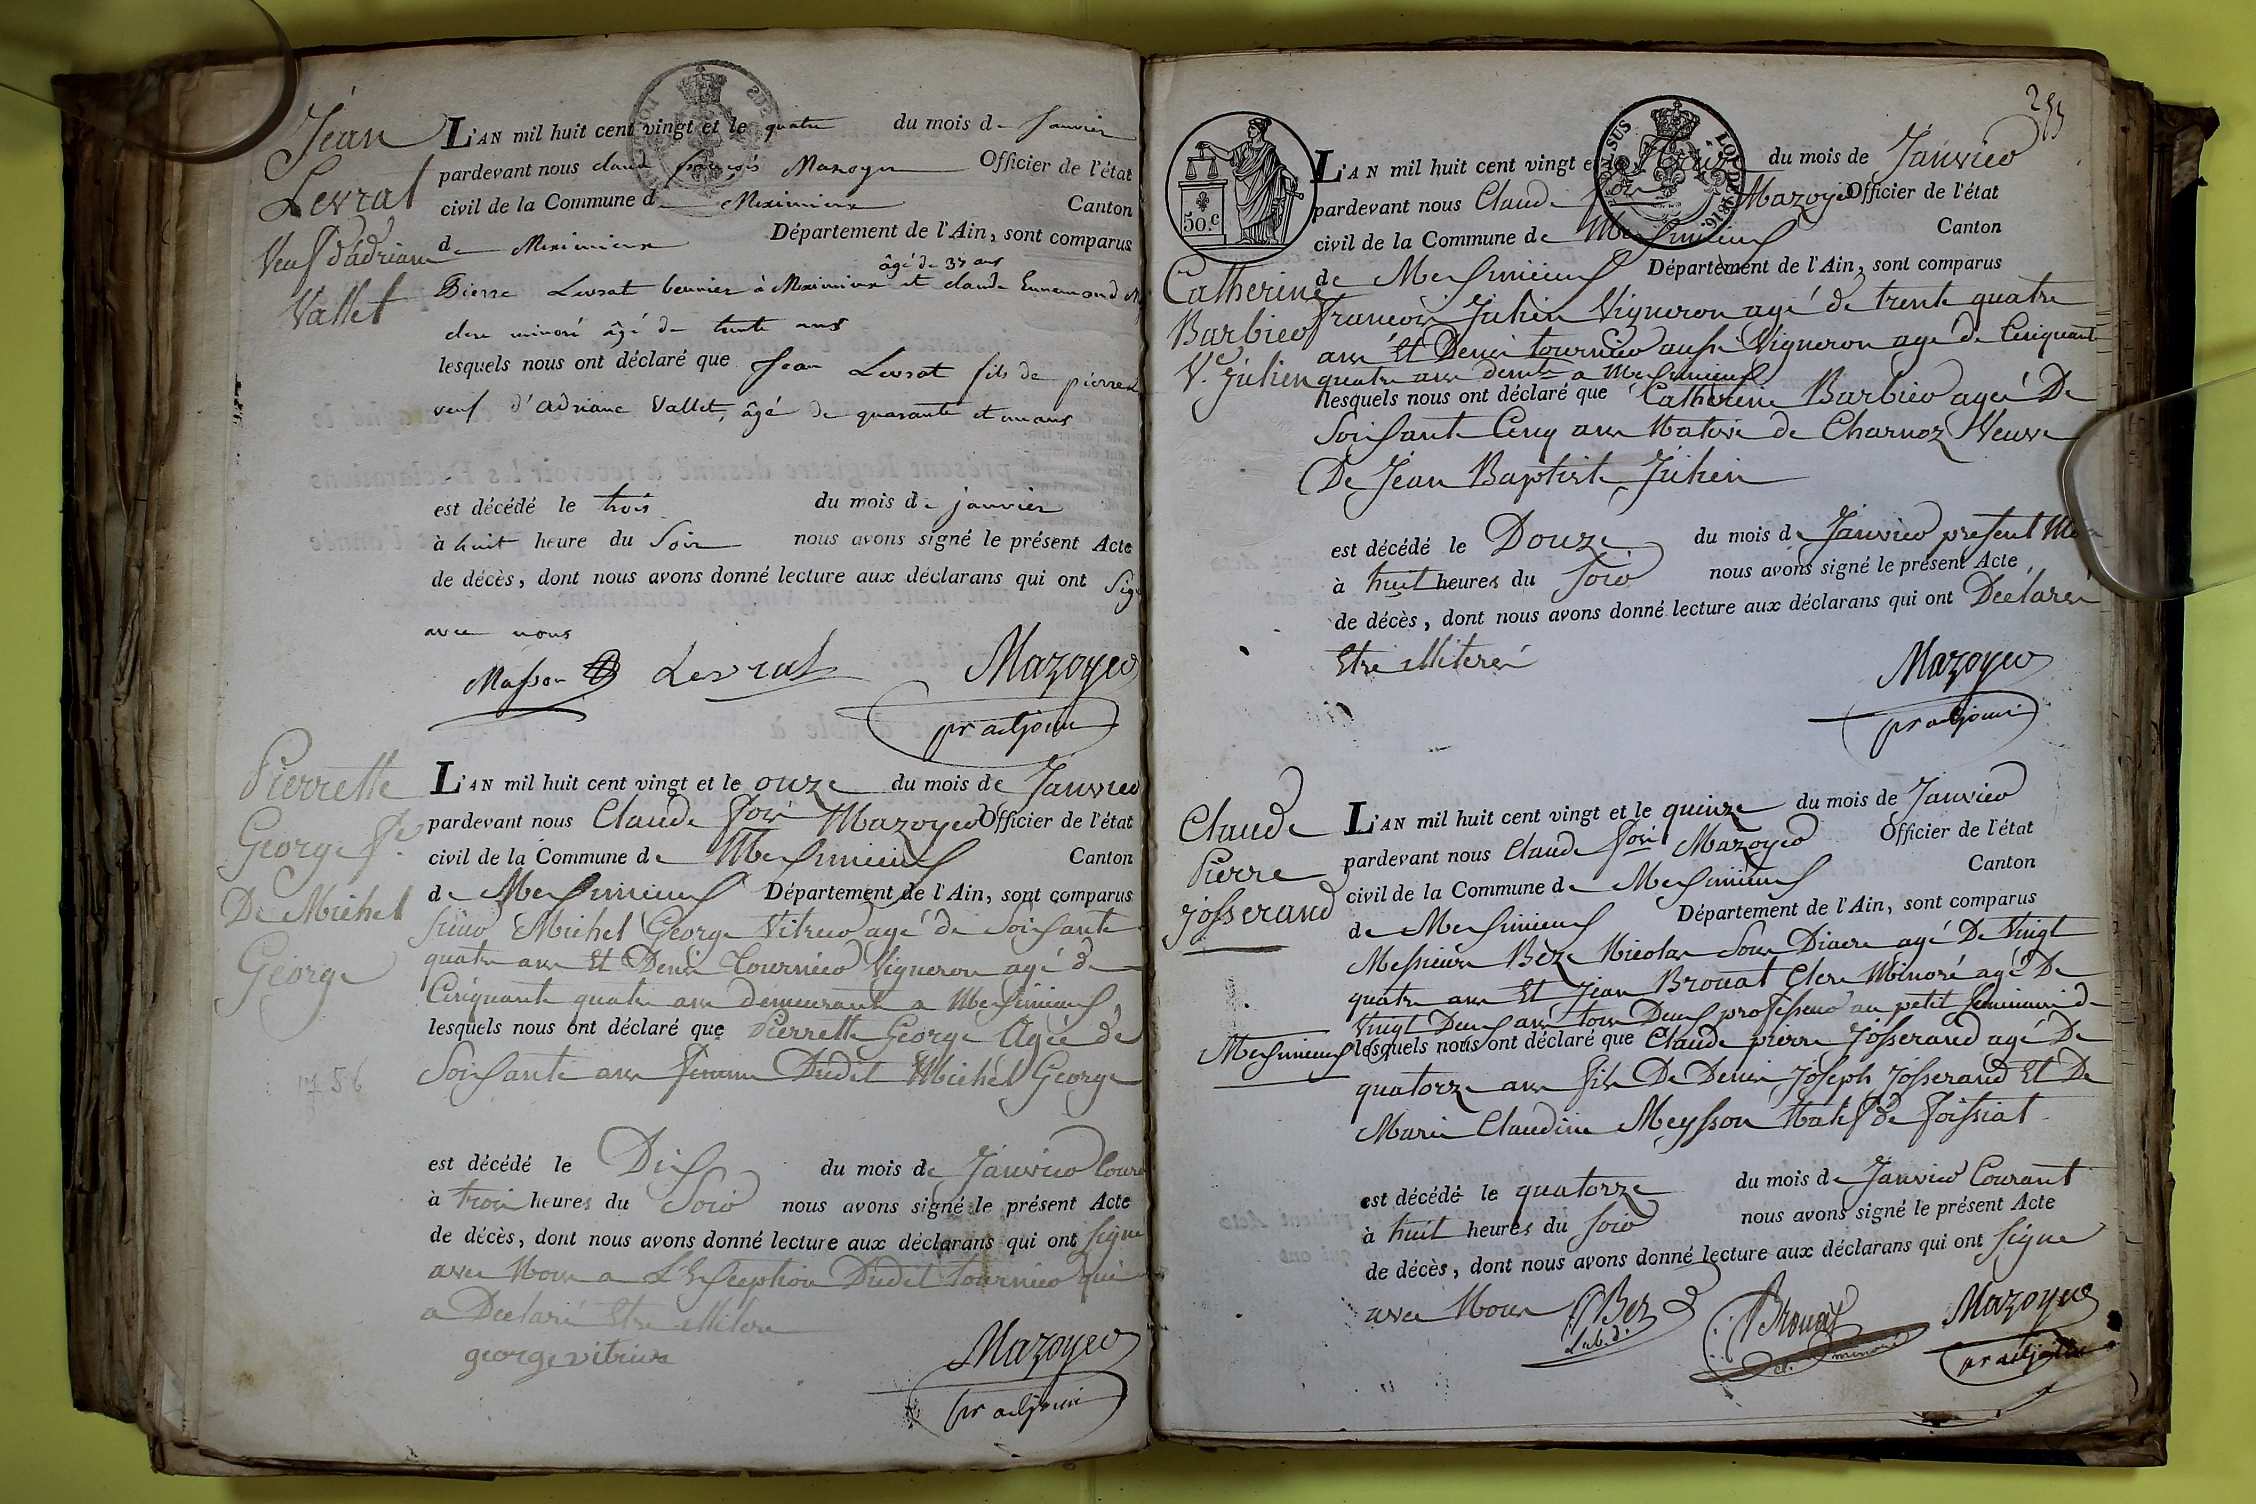 Jean
Levrat
Veuf d'adriane
Vallet
L'AN mil huit cent vingt et le quatre du mois de Janvier
pardevant nous claude françois Mazoyer Officier de l'état
civil de la Commune de Meximieux Canton
de Meximieux Département de l'Ain, sont comparus
âgé de 37 ans
Pierre Levrat à Meximieux et claude Ennemond
clerc minoré âgé de trente ans
lesquels nous ont déclaré que Jean Levrat fils de pierre
veuf d'adriane Vallet, âgé de quarante et un ans
est décédé le trois du mois de janvier
à huit heure du Soir nous avons signé le présent Acte
de décès, dont nous avons donné lecture aux déclarans qui ont Sig
avec nous
Masson Levrat Mazoyer
pr adjoint
Pierrette
George fe.
De Michel
George
1756
L'AN mil huit cent vingt et le onze du mois de Janvier
pardevant nous Claude fois Mazoyer Officier de l'état
civil de la Commune de Meximieux Canton
de Meximieux Département de l'Ain, sont comparus
Sieur Michel George Vitrier agé de Soixante
quatre ans Et Denis Tournier Vigneron agé de
Cinquante quatre ans demeurants a Meximieux
lesquels nous ont déclaré que Pierrette George Agée de
Soixante ans femme Dudit Michel George
est décédé le Dix du mois de Janvier Cour
à trois heures du Soir nous avons signé le présent Acte
de décès, dont nous avons donné lecture aux déclarans qui ont Signé
avec Nous a L'Exception Dudit Tournier qui
a Declaré Etre illiteré
george vitrier
Mazoyer
pr adjoint
253
50.c
TIMBRE SUS LOI DE 1816
Catherine
Barbier
Ve. Julien
L'AN mil huit cent vingt et le du mois de Janvier
pardevant nous Claude fois Mazoyer Officier de l'état
civil de la Commune de Meximieux Canton
de Meximieux Département de l'Ain, sont comparus
François Julien Vigneron agé de trente quatre
ans Et Denis tournier aussi Vigneron agé de Cinquante
quatre ans demt a Meximieux
lesquels nous ont déclaré que Catherine Barbier ageé De
Soixante Cinq ans Native de Charnoz Veuve
De Jean Baptiste Julien
est décédé le Douze du mois de Janvier present Mois
à huit heures du Soir nous avons signé le présent Acte
de décès, dont nous avons donné lecture aux déclarans qui ont Déclaré
Etre illiterés
Mazoyer
pr adjoint
Claude
Pierre
josserand
L'AN mil huit cent vingt et le quinze du mois de Janvier
pardevant nous Claude fois Mazoyer Officier de l'état
civil de la Commune de Meximieux Canton
de Meximieux Département de l'Ain, sont comparus
Messieurs Bez Nicolas Sous Diacre agé De Vingt
quatre ans Et Jean Brouat Clerc Minoré agé De
Vingt Deux ans tous Deux professeur au petit Seminaire de
Meximieux lesquels nous ont déclaré que Claude pierre Josserand agé De
quatorze ans fils De Denis Joseph Josserand Et De
Marie Claudine Meysson Natif de foissiat
est décédé le quatorze du mois de Janvier Courant
à huit heures du Soir nous avons signé le présent Acte
de décès, dont nous avons donné lecture aux déclarans qui ont Signé
avec Nous Bez Brouat Mazoyer
s.d. cl. minoré pr adjoint